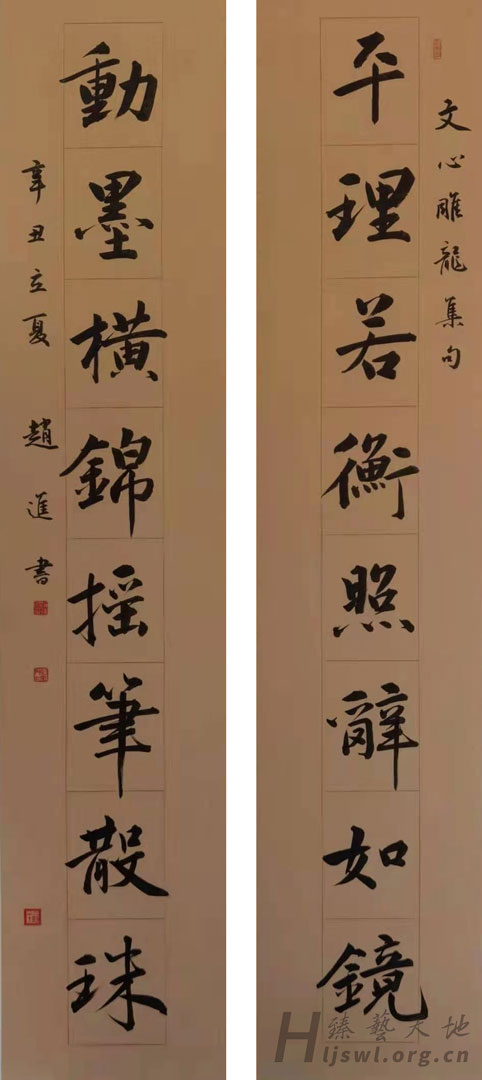 文心雕龍集句
平理若衡照辭如鏡
動墨橫錦摇筆散珠
辛丑立夏 趙進書
臻藝天地
Hljswl.org.cn